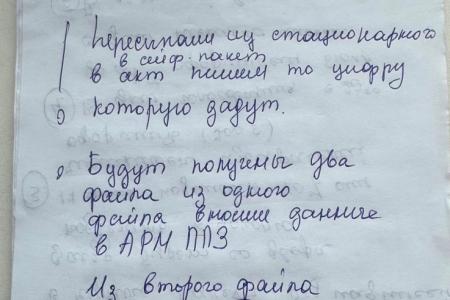 Пересыпаем из стационарного
в сейф. пакет
в акт пишем то цифру
которую дадут.
Будут получены два
файла из одного
файла вносим данные
в АРМ ППЗ
Из второго файла